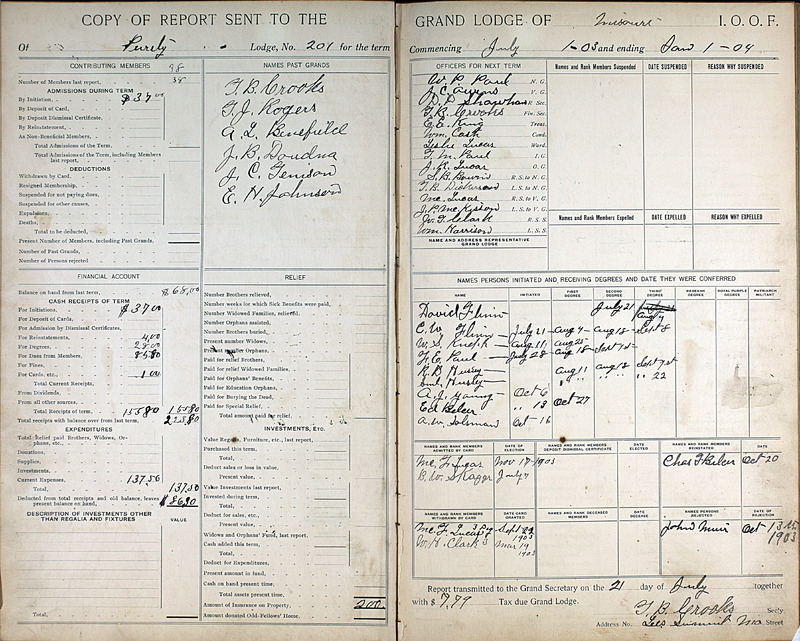 COPY OF REPORT SENT TO THE
Of Purity Lodge, No. 201 for the term
CONTRIBUTING MEMBERS
Number of Members last report,
ADMISSIONS DURING TERM
By Initiation, $37.00
By Deposit of Card,
By Deposit Dismissal Certificate,
By Reinstatement,
As Non-Beneficial Members,
Total Admissions of the Term,
Total Admissions of the Term, including Members
last report,
DEDUCTIONS
Withdrawn by Card,
Resigned Membership,
Suspended for not paying dues,
Suspended for other causes,
Expulsions,
Deaths,
Total to be deducted,
Present Number of Members, including Past Grands,
Number of Past Grands,
Number of Persons rejected
NAMES PAST GRANDS
T. B. Crooks
T. J. Rogers
A. L. Benefield
J. B. Doudna
J. C. Temson
E. H. Johnson
FINANCIAL ACCOUNT
Balance on hand from last term, $68.00
CASH RECEIPTS OF TERM
For Initiations, $37.00
For Deposit of Cards,
For Admission by Dismissal Certificates,
For Reinstatements, 4.00
For Degrees, 28.00
For Dues from Members, 85.80
For Fines,
For Cards, etc., 1.00
Total Current Receipts,
From Dividends,
From all other sources,
Total Receipts of term, 155.80 155.80
Total receipts with balance over from last term,
EXPENDITURES
Total Relief paid Brothers, Widows, Or-
phans, etc.,
Donations,
Supplies,
Investments,
Current Expenses, 137.50
Total, 137.50
Deducted from total receipts and old balance, leaves
present balance on hand, $86.30
DESCRIPTION OF INVESTMENTS OTHER
THAN REGALIA AND FIXTURES
VALUE
Total,
RELIEF
Number Brothers relieved,
Number weeks for which Sick Benefits were paid,
Number Widowed Families, relieved,
Number Orphans assisted,
Number Brothers buried,
Present number Widows,
Present number Orphans,
Paid for relief Brothers,
Paid for relief Widowed Families,
Paid for Orphans' Benefits,
Paid for Education Orphans,
Paid for Burying the Dead,
Paid for Special Relief,
Total amount paid for relief,
INVESTMENTS, ETC.
Value Regalia, Furniture, etc., last report,
Purchased this term,
Total,
Deduct sales or loss in value,
Present value,
Value Investments last report,
Invested during term,
Total,
Deduct for sales, etc.,
Present value,
Widows and Orphans' Fund, last Report,
Cash added this term,
Total,
Deduct for Expenditures,
Present amount in fund,
Cash on hand present time,
Total assets present time,
Amount of Insurance on Property, 200
Amount donated Odd-Fellows' Home,
GRAND LODGE OF Missouri I. O. O. F.
Commencing July 1-03 and ending Jan 1-04
OFFICERS FOR NEXT TERM
W. P. Paul N. G.
V. G.
R. Sec.
T. B. Crooks Fin. Sec.
E. E. King Treas.
Wm. Cash Cond.
Leslie Lucas Ward.
T. M. Paul I. G.
J. H. Lucas O. G.
S. B. Bowin R. S. to N. G.
T. R. Dickerson L. S. to N. G.
Mc. Lucas R. S. to V. G.
J. P. McKiston L. S. to V. G.
W. T. Clark R. S. S.
Wm. Harrison L. S. S.
NAME AND ADDRESS REPRESENTATIVE
GRAND LODGE
Names and Rank Members Suspended DATE SUSPENDED REASON WHY SUSPENDED
Names and Rank Members Expelled DATE EXPELLED REASON WHY EXPELLED
NAMES PERSONS INITIATED AND RECEIVING DEGREES AND DATE THEY WERE CONFERRED
NAME INITIATED FIRST DEGREE SECOND DEGREE THIRD DEGREE REBEKAH DEGREE ROYAL PURPLE DEGREE PATRIARCH MILITANT
David Flinn July 21 Aug 4
E. W. Flinn July 21 Aug 4 Aug 18 Sept 8
W. S. Aug 11 Aug 25
T. E. Paul July 28 Aug 18 Sept 1st
R. B. Husley Aug 11 Aug 18 Sept 1st
Husley " " " 22
A. J. Young Oct 6
Ed Belcer " 13 Oct 27
A. W. Soloman Oct 16
NAMES AND RANK MEMBERS ADMITTED BY CARD DATE OF ELECTION NAMES AND RANK MEMBERS DEPOSIT DISMISSAL CERTIFICATE DATE ELECTED NAMES AND RANK MEMBERS REINSTATED DATE
Mc. F. Lucas Nov 17-1903 Chas F Belcer Oct 20
B. W. Skaggs July 7
NAMES AND RANK MEMBERS WITHDRAWN BY CARD DATE CARD GRANTED NAMES AND RANK DECEASED MEMBERS DATE DECEASE NAMES PERSONS REJECTED DATE OF REJECTION
Mc F. Lucas Sept 22 1903 John Muir Oct 13 1903
W. H. Clark Mar 19 1903
Report transmitted to the Grand Secretary on the 21 day of July together
with $ 7.79 Tax due Grand Lodge.
T. B. Crooks Sec'y
Address No. Lees Summit Mo Street